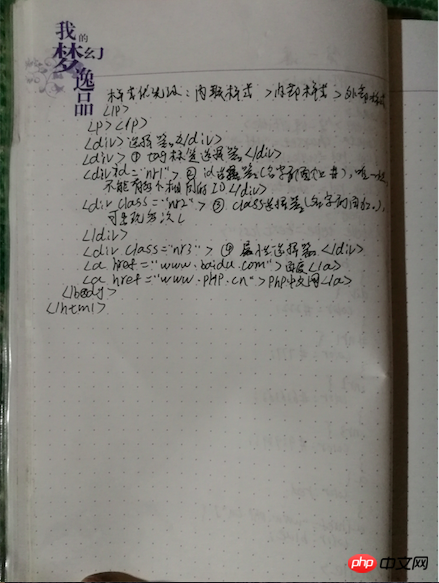 我的
梦幻
逸品
样式优先级：内联样式 >内部样式 >外部样式
</p>
<p></p>
<div>选择器</div>
<div> ① 标签选择器 </div>
<div id="nr1"> ② id选择器(名字前面加#), 唯一性
不能有两个相同的ID</div>
<div class="nr2"> ③ class选择器(名字前面加.),
可出现多次
</div>
<div class="nr3"> ④ 属性选择器 </div>
<a href="www.baidu.com">百度</a>
<a href="www.php.cn">php中文网</a>
</body>
</html>
php 中文网